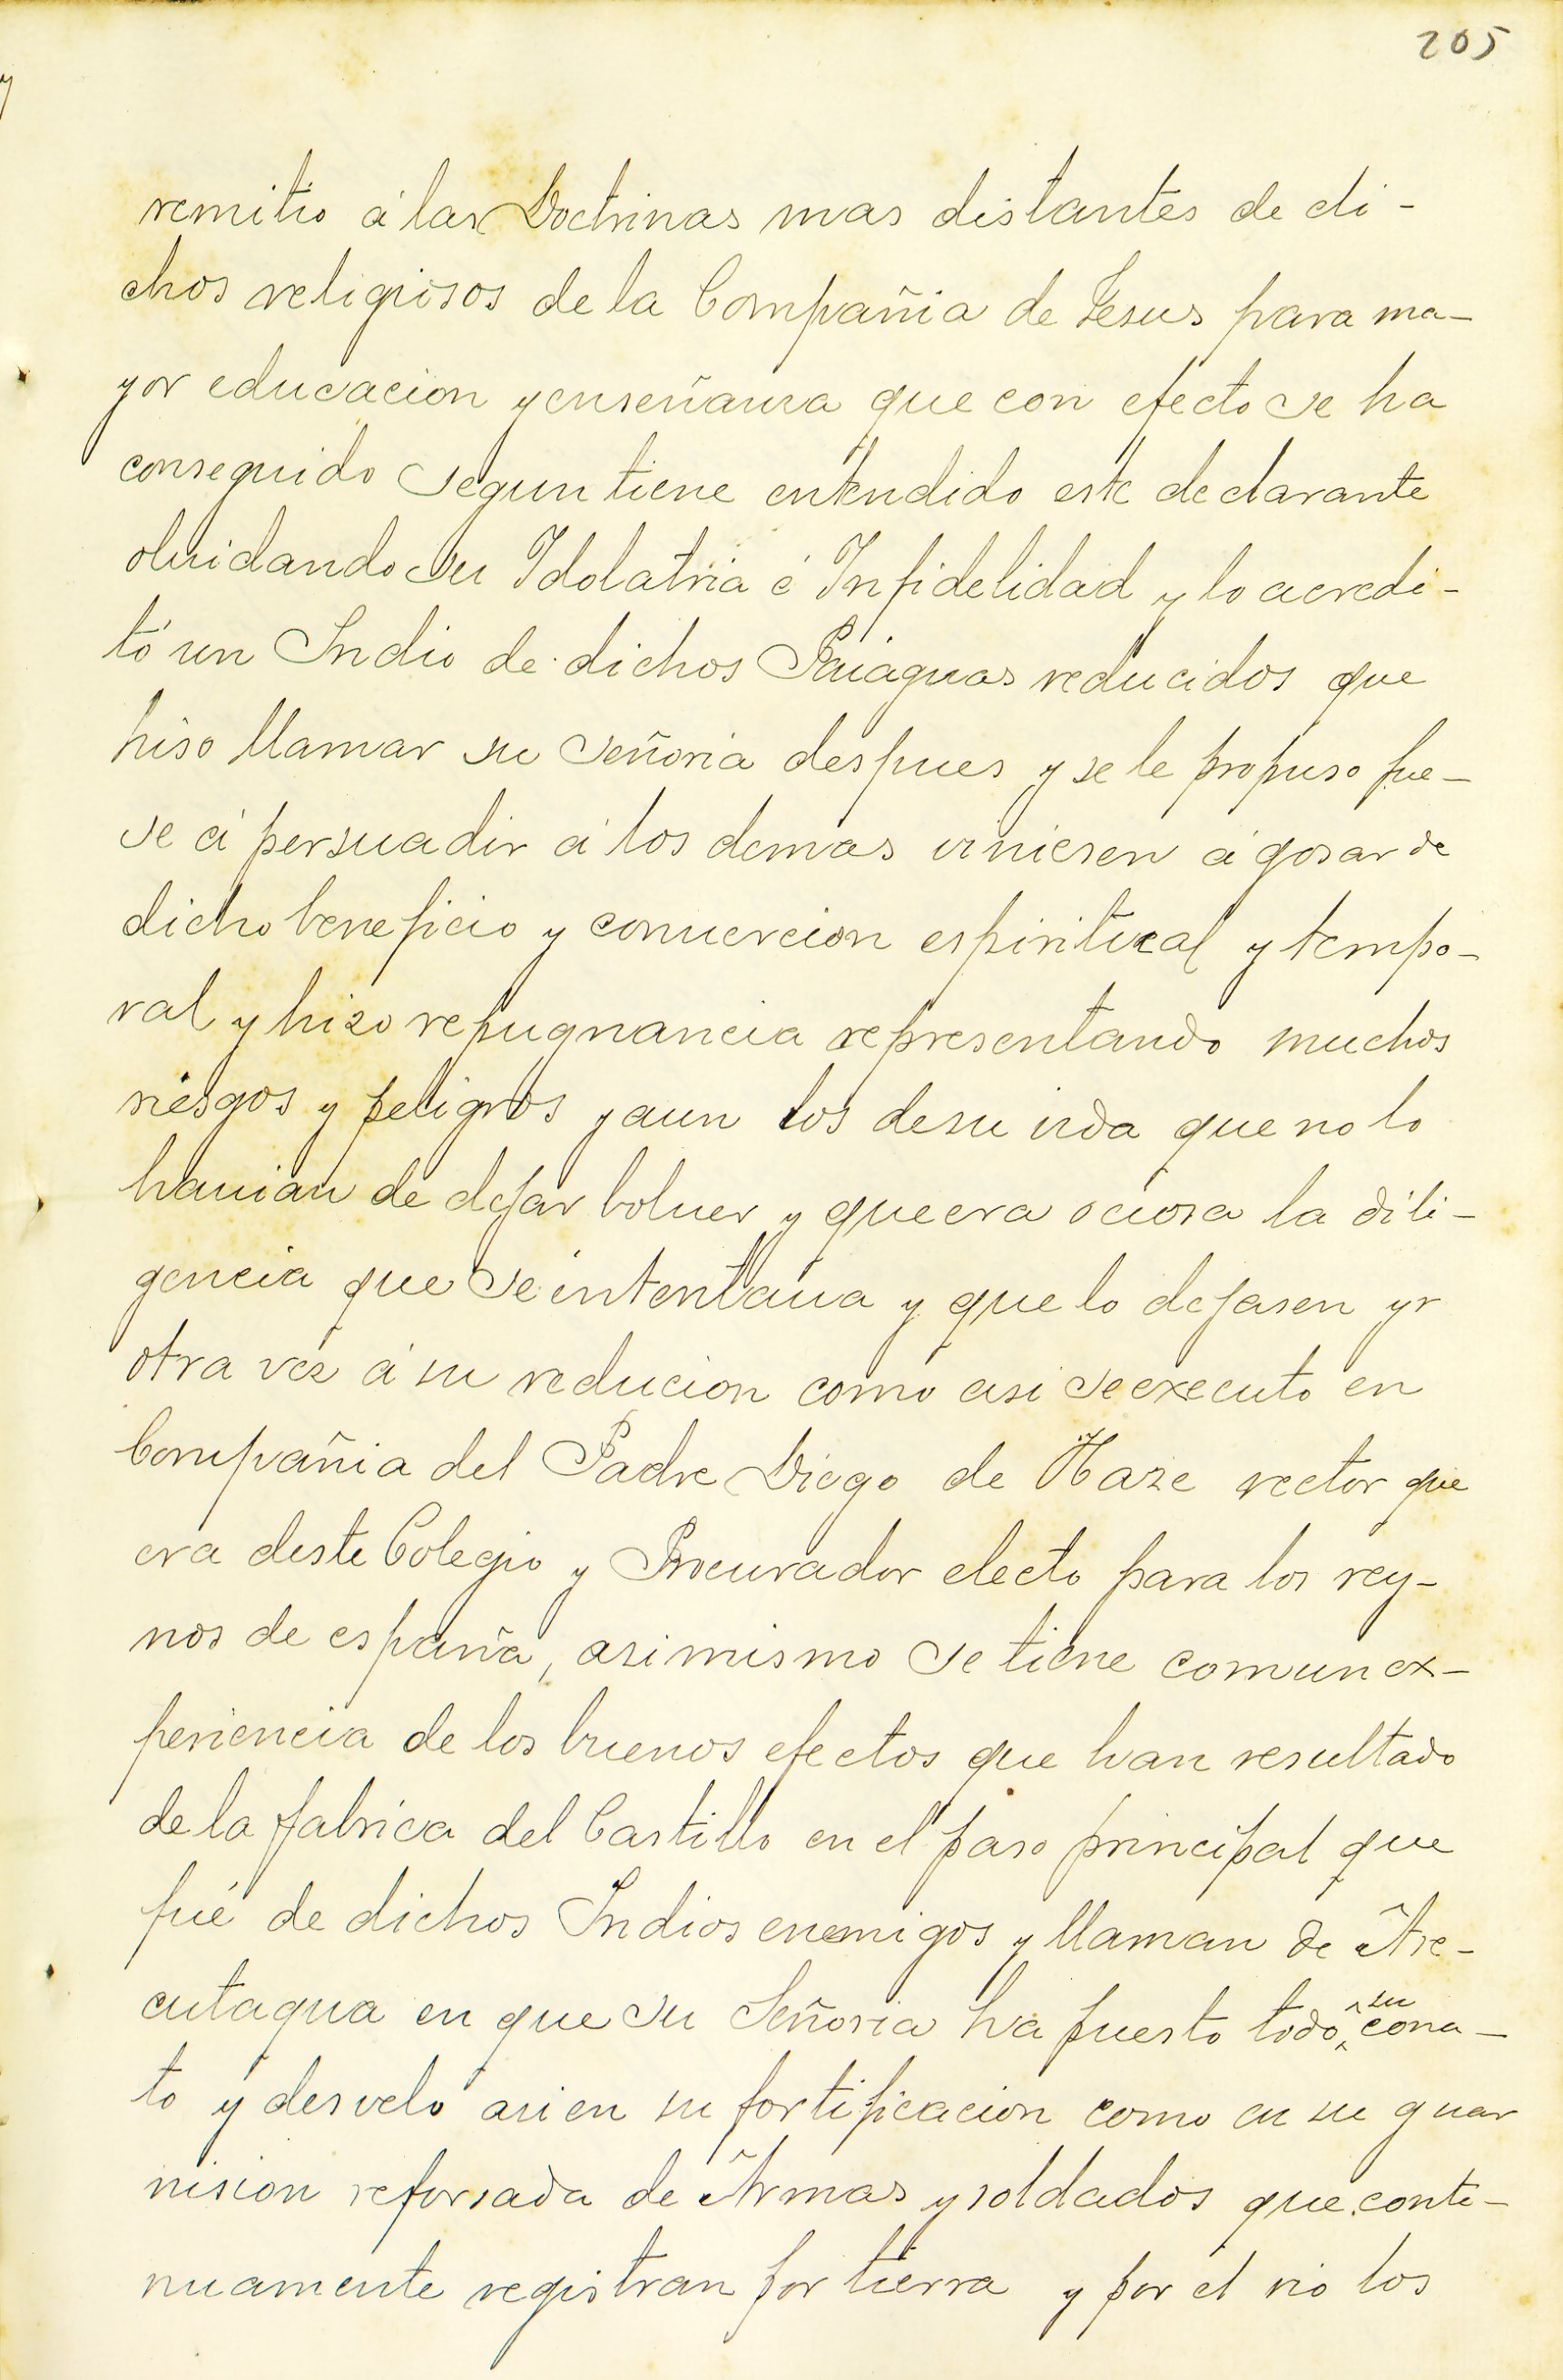 205
remitio á las Doctrinas mas distantes de di-
chos religiosos de la Compañia de Jesus para ma-
yor educacion y enseñansa que con efecto se ha
conseguido segun tiene entendido este declarante
oluidando su Idolatria é Infidelidad y lo acredi-
tó un Indio de dichos Paiaguas reducidos que
hiso llamar su Señoria despues y se le propuso fue-
se á persuadir á los demas viniesen á gosar de
dicho beneficio y conuercion espiritual y tempo-
ral y hizo repugnancia representando muchos
riesgos y peligros y aun los de su vida que no lo
hauian de dejar boluer y que era ociosa la dili-
gencia que se intentaua y que lo dejasen yr
otra vez á su reducion como asi se executo en
Compañia del Padre Diego de Haze rector que
era deste Colegio y Procurador electo para los rey-
nos de españa, asimismo se tiene comun ex-
periencia de los buenos efectos que han resultado
de la fabrica del Castillo en el paso principal que
fué de dichos Indios enemigos y llaman de Are-
cutagua en que su Señoria ha puesto todo su cona-
to y desvelo asi en su fortificacion como en su guar
nision reforsada de Armas y soldados que conti-
nuamente registran por tierra y por el rio los